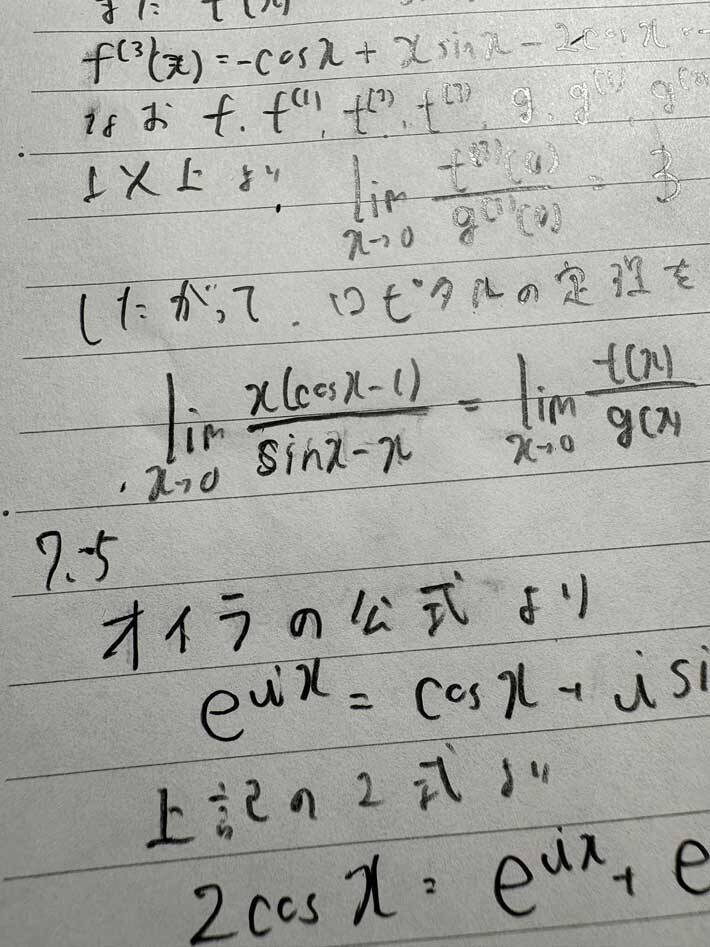 また f(x)
f⁽³⁾(x) = -cosx + x sinx - 2cosx
なお f, f⁽¹⁾, f⁽²⁾, f⁽³⁾, g, g⁽¹⁾, g⁽²⁾
以上より lim x→0 f⁽³⁾(x)/g⁽³⁾(x) = 3
したがって、ロピタルの定理を
lim x→0 x(cosx-1)/sinx-x = lim x→0 f(x)/g(x)
7.5
オイラの公式より
e^ix = cosx + i si
上記の2式より
2cosx = e^ix + e